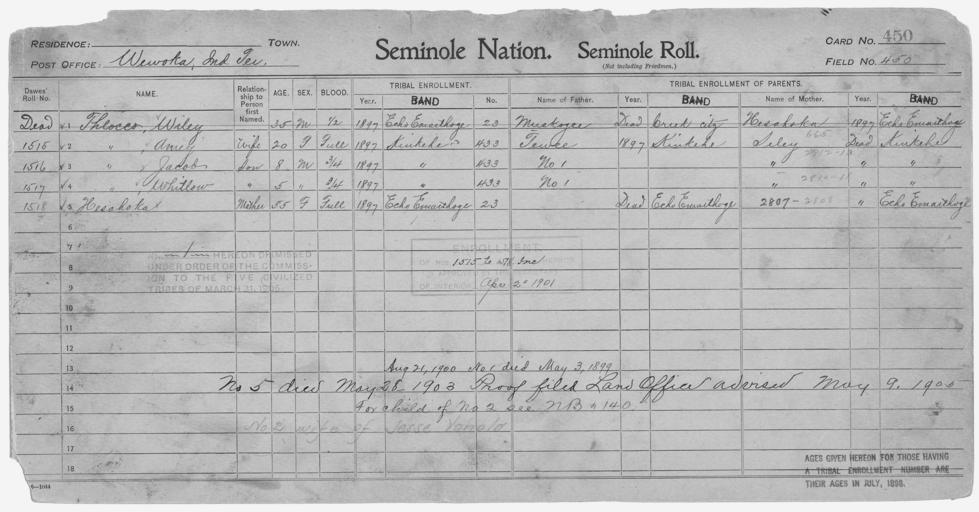 RESIDENCE: TOWN. Seminole Nation. Seminole Roll. CARD NO. 450
POST OFFICE: Wewoka, Ind Ter. (Not including Freedmen.) FIELD NO. 450
Dawes' Roll No. NAME. Relationship to Person first Named. AGE. SEX. BLOOD. TRIBAL ENROLLMENT. TRIBAL ENROLLMENT OF PARENTS.
Year. BAND No. Name of Father. Year. BAND Name of Mother. Year. BAND
Dead 1 Thlocco, Wiley 35 M 1/2 1897 Echo Emaithoge 23 Muskogee Dead Creek city Hesahoka 1897 Echo Emaithoge
1515 2 " Amey Wife 20 F Full 1897 Kinkehe 433 1897 Kinkehe Siley 665 Dead Kinkehe
1516 3 " Jacob Son 8 M 3/4 1897 " 433 No 1 " " "
1517 4 " Whitlow " 5 " 3/4 1897 " 433 No 1 " " "
1518 5 Hesahoka Mother 55 F Full 1897 Echo Emaithoge 23 Dead Echo Emaithoge 2807-2808 " Echo Emaithoge
6
7
No. 1 HEREON DISMISSED
UNDER ORDER OF THE COMMISS-
ION TO THE FIVE CIVILIZED
TRIBES OF MARCH 31, 1905.
ENROLLMENT
OF NOS 1515 to 1518 Inc HEREON
APPROVED BY THE
OF INTERIOR Apr 2 1901
8
9
10
11
12
13 Aug 21, 1900 No 1 died May 3, 1899
14 No 5 died May 28 1903 Proof filed Land Office advised May 9,
15 For child of No 2 see NB # 140
16 No 2 wife of Jesse
17
18
AGES GIVEN HEREON FOR THOSE HAVING
A TRIBAL ENROLLMENT NUMBER ARE
THEIR AGES IN JULY, 1898.
6—1044